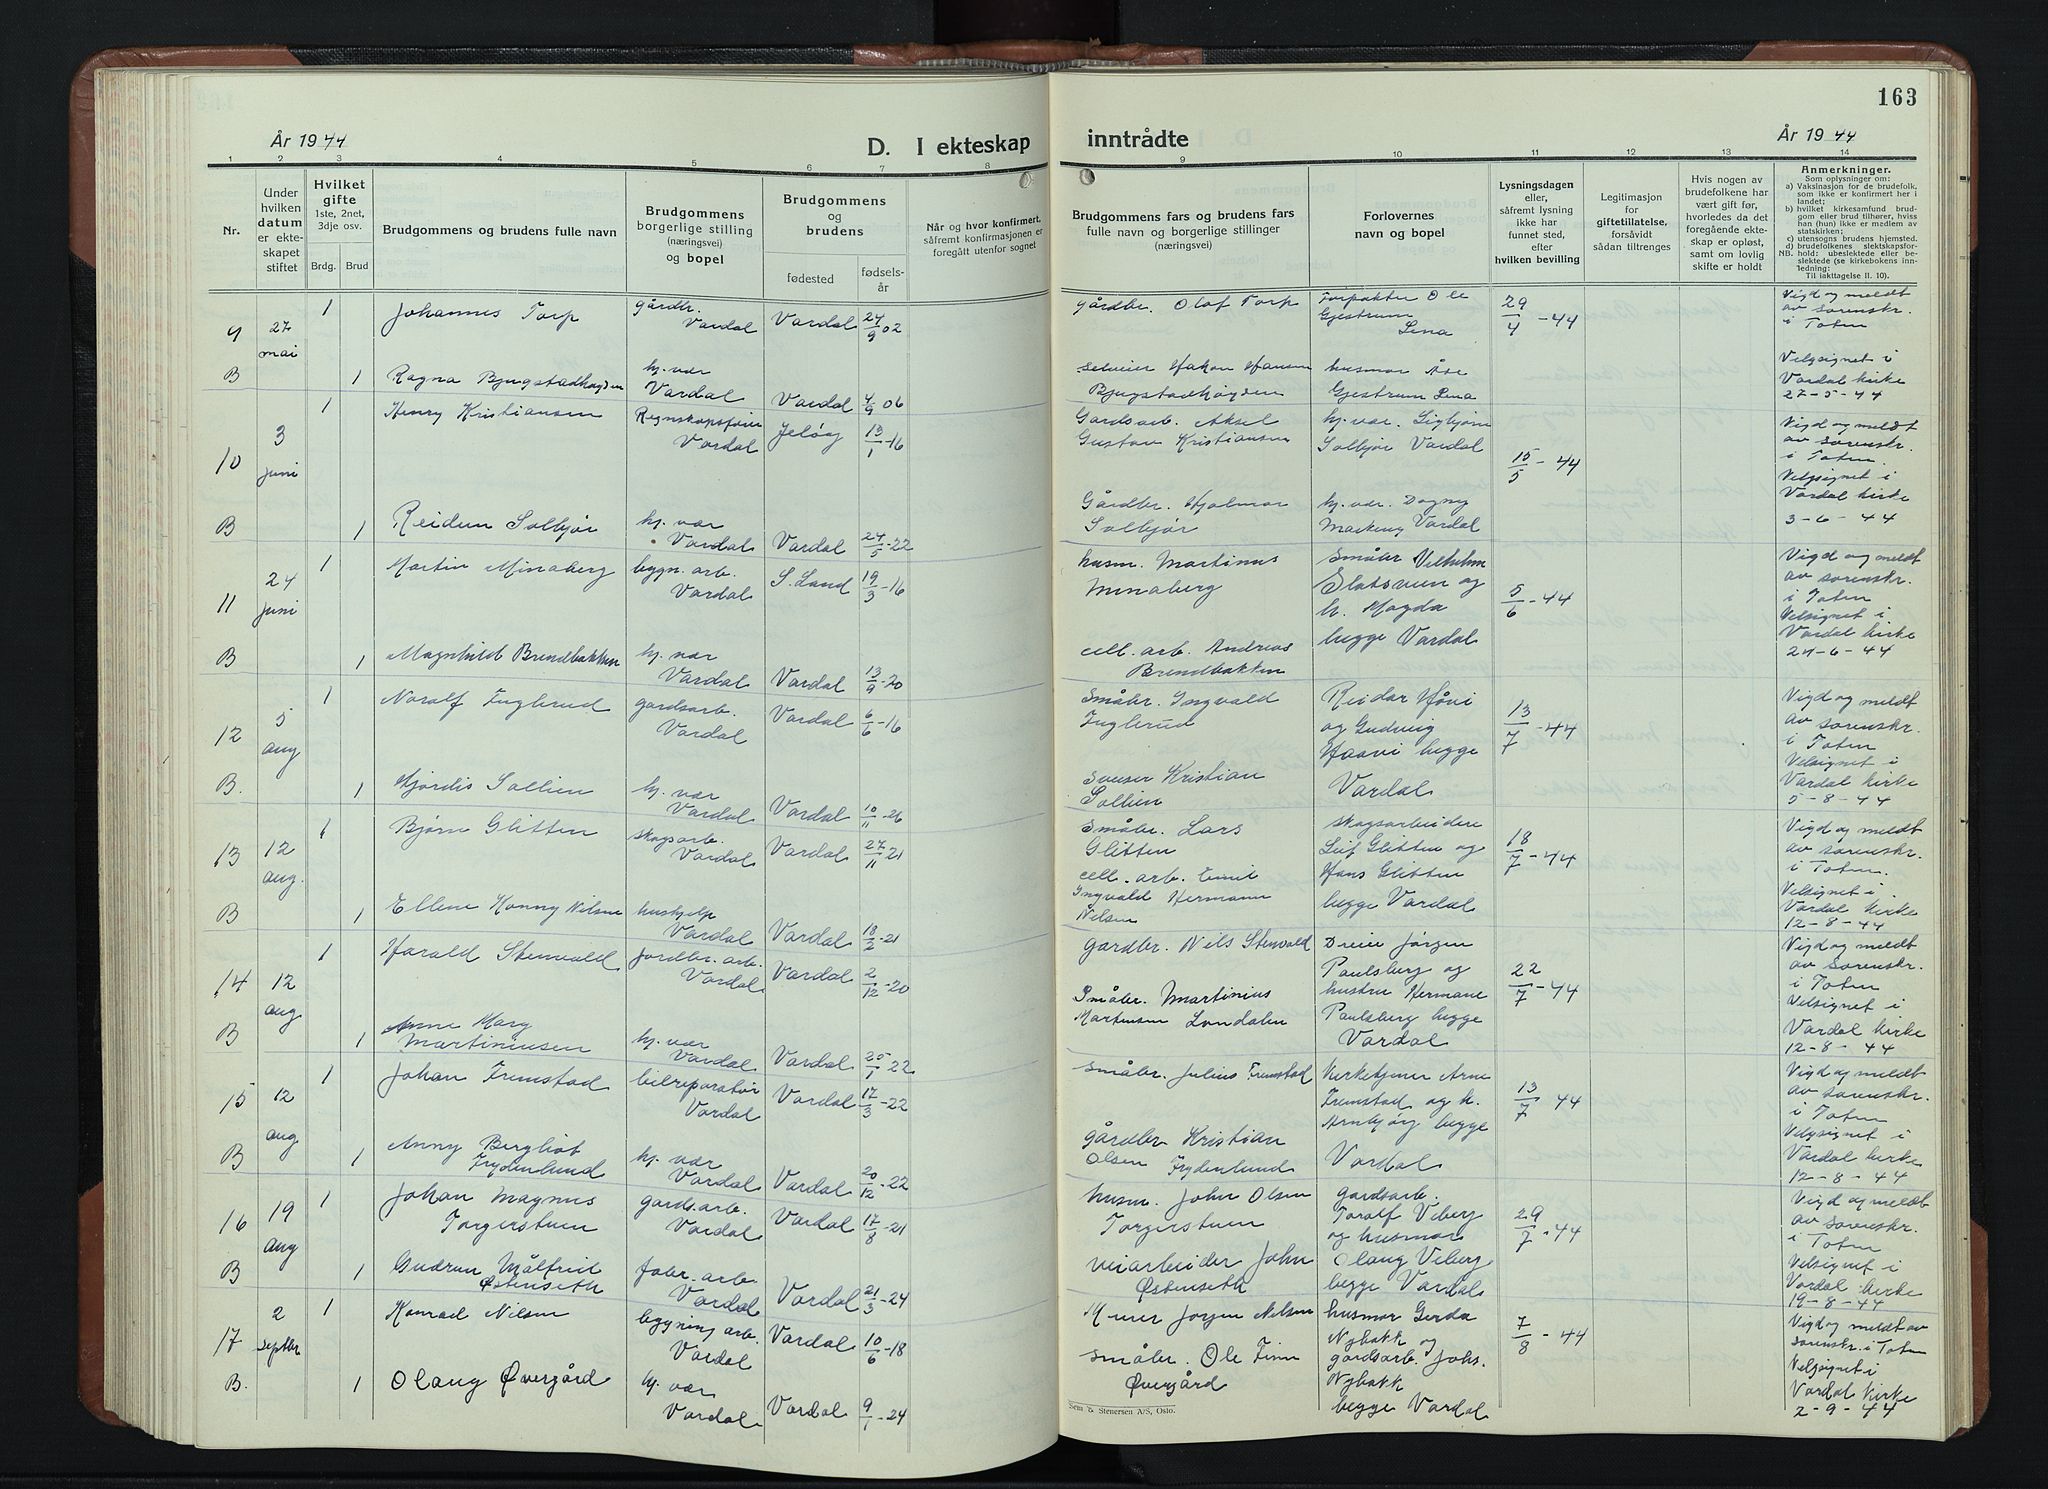 163
År 1944
D. I ekteskap
inntrådte
År 1944
1 2 3 4 5 6 7 8
9 10 11 12 13 14
Nr.
Under
hvilken
datum
er ekte-
skapet
stiftet
Hvilket
gifte
1ste, 2net,
3dje osv.
Brdg. Brud
Brudgommens og brudens fulle navn
Brudgommens
borgerlige stilling
(næringsvei)
og bopel
Brudgommens
og
brudens
fødested
fødsels-
år
Når og hvor konfirmert,
såfremt konfirmasjonen er
foregått utenfor sognet
Brudgommens fars og brudens fars
fulle navn og borgerlige stillinger
(næringsvei)
Forlovernes
navn og bopel
Lysningsdagen
eller,
såfremt lysning
ikke har
funnet sted,
efter
hvilken bevilling
Legitimasjon
for
giftetillatelse,
forsåvidt
sådan tiltrenges
Hvis nogen av
brudefolkene har
vært gift før,
hvorledes da det
foregående ekte-
skap er opløst,
samt om lovlig
skifte er holdt
Anmerkninger.
Som oplysninger om:
a) Vaksinasjon for de brudefolk,
som ikke er konfirmert her i
landet;
b) hvilket kirkesamfund brud-
gom eller brud tilhører, hviss
han (hun) ikke er medlem av
statskirken;
c) utensogns brudens hjemsted.
d) brudefolkenes slektskapsfor-
NB. hold: ubeslektede eller be-
slektede (se kirkebokens inn-
ledning:
Til iakttagelse II. 10).
9 27 mai 1 Johannes Torp gårdbr. Vardal Vardal 24/9 02
gårdbr. Olaf Torp
Forpakter Ole
Gjestrum
Lena
29/4 - 44
Vigd og meldt
av sorenskr.
i Toten
B 1 Ragna Bjugstadhagen hj. vær Vardal Vardal 4/9 06
selveier Hakon Hansen
Bjugstadhøgden
husmor Åse
Gjestrum Lena
Velsignet i
Vardal kirke
27-5-44
10 3 juni 1 Henry Kristiansen Regnskapsfører Vardal Jeløy 13/1-16
Gardsarb. Aksel
Gustav Kristiansen
hj. vær. Sigbjørn
Solbjør Vardal
15/5 - 44
Vigd og meldt
av sorenskr.
i Toten.
Velsignet i
Vardal kirke
3-6-44
B 1 Reidun Solbjør hj. vær Vardal Vardal 24/5-22
Gårdbr. Hjalmar
Solbjør
hj. vær. Dagny
Vardal
11 24 juni 1 Martin Minaberg bygn. arb. Vardal S. Land 19/3-16
husm. Martinus
Minaberg
Småbr. Vilhelm
Slaatsveen og
h. Magda
begge Vardal
5/6-44
Vigd og meldt
av sorenskr.
i Toten
Velsignet i
Vardal kirke
24-6-44
B 1 Magnhild Brendbakken hj. vær Vardal Vardal 13/9-20
cell. arb. Andreas
Brendbakken
12 5 aug 1 Noralf Fuglerud gardsarb. Vardal Vardal 6/6-16
Småbr. Ingvald
Fuglerud
Reidar Håvi
og Gudveig
Haavi begge
Vardal
13/7-44
Vigd og meldt
av sorenskr.
i Toten
Velsignet i
Vardal kirke
5-8-44
B. 1 Hjørdis Sollien hj. vær Vardal Vardal 10/11-26
Kristian
Sollien
13 12 aug. 1 Bjørn Glitten skogsarb. Vardal Vardal 27/11-21
Småbr. Lars
Glitten
skogsarbeidere
Leif Glitten og
Hans Glitten
begge Vardal
18/7-44
Vigd og meldt
av sorenskr.
i Toten.
Velsignet i
Vardal kirke
12-8-44
B 1 Ellene Konny Nilsen hushjelp Vardal Vardal 18/2-21
cell. arb. Emil
Ingvald Hermann
Nilsen
14 12 aug 1 Harald Stenvald jordbr. arb. Vardal Vardal 2/12-20
gardbr. Nils Stenvald
Dreier Jørgen
Paulsberg og
hustru Hermane
Paulsberg begge
Vardal
22/7-44
Vigd og meldt
av Sorenskr.
i Toten
Velsignet i
Vardal kirke
12-8-44
B 1 Anne Mary
Martiniusen hj. vær Vardal Vardal 25/1-22
Småbr. Martinius
Martinsen Londalen
15 12 aug 1 Johan Fremstad bilreparatør Vardal Vardal 17/3-22
småbr. Julius Fremstad
Kirketjener Arne
Fremstad og h.
Arnbjørg begge
Vardal
13/7 44
Vigd og meldt
av sorenskr.
i Toten
Velsignet i
Vardal kirke
12-8-44
B 1 Anny Bergliot
Frydenlund hj. vær Vardal Vardal 20/12-22
gårdbr Kristian
Olsen Frydenlund
16 19 aug 1 Johan Magnus
Torgerstuen gards.arb. Vardal Vardal 17/8-21
husm. John Olsen
Torgerstuen
gardsarb.
Toralf Viberg
og husmor
Olaug Viberg
begge Vardal
29/7-44
Vigd og meldt
av sorenskr.
i Toten
Velsignet i
Vardal kirke
19-8-44
B 1 Gudrun Målfrid
Østenseth fabr. arb. Vardal Vardal 21/3-24
veiarbeider John
Østenseth
17 2 septbr 1 Konrad Nilsen bygning arb. Vardal Vardal 10/6-18
Murer Jørgen Nilsen
husmor Gerda
Nybakk og
gardsarb. Johs.
Nybakk
begge Vardal
7/8-44
Vigd og meldt av
sorenskr. i Toten
Velsignet i
Vardal Kirke
2-9-44
B. 1 Olaug Øvergård hj. vær Vardal Vardal 9/1-24
småbr. Ole Finn
Øvergård
Sem & Stenersen A/S, Oslo.